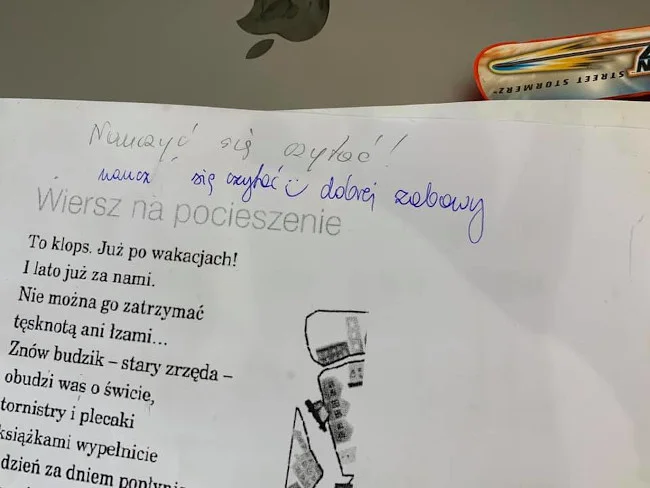 STREET STORMERZ
Nauczyć się czytać!
naucz się czytać dobrej zabowy
Wiersz na pocieszenie
To klops. Już po wakacjach!
I lato już za nami.
Nie można go zatrzymać
tęsknotą ani łzami...
Znów budzik – stary zrzęda –
obudzi was o świcie,
tornistry i plecaki
książkami wypełnicie
dzień za dniem